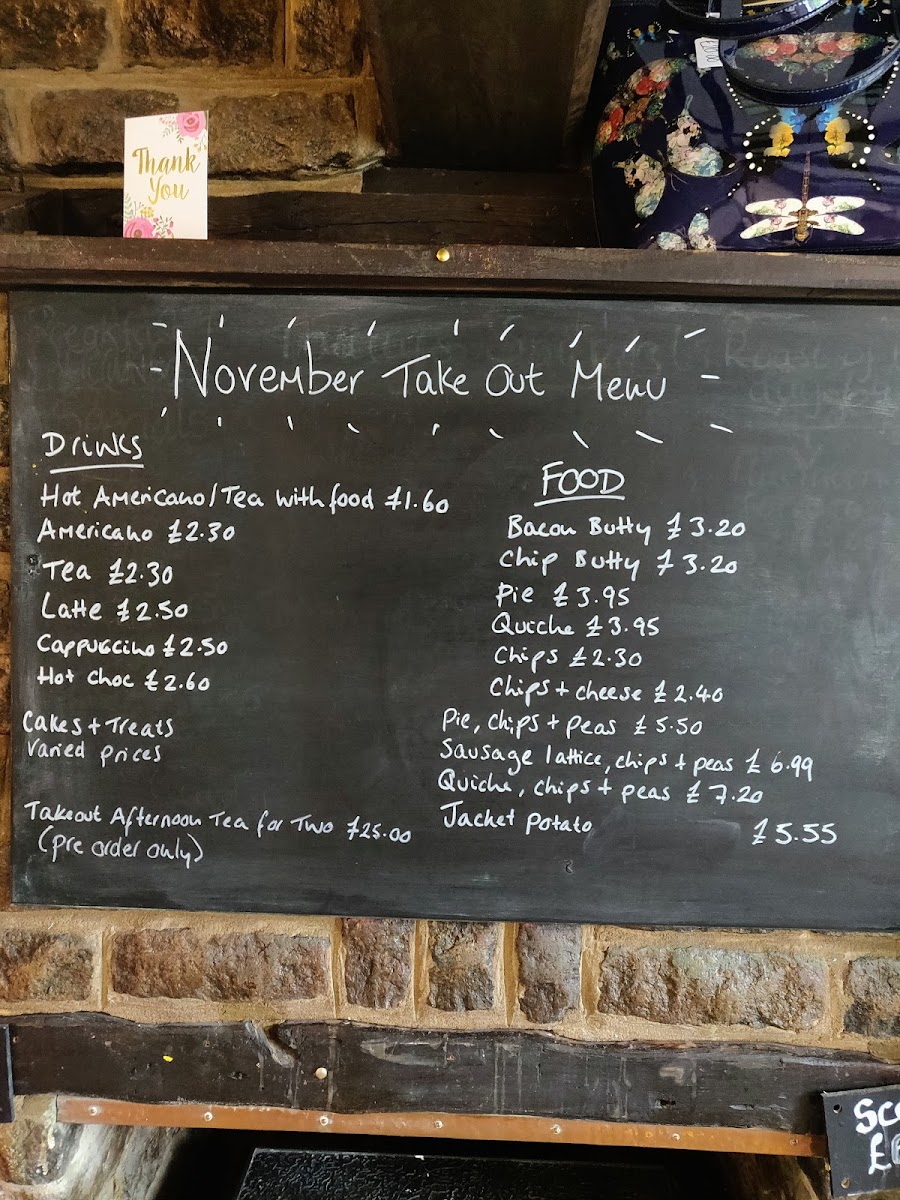 Thank
You
November Take Out Menu
Drinks
Hot Americano/Tea with food £1.60
Americano £2.30
Tea £2.30
Latte £2.50
Cappuccino £2.50
Hot Choc £2.60
Cakes + Treats
Varied prices
Takeout Afternoon Tea for Two £25.00
(pre order only)
FOOD
Bacon Butty £3.20
Chip Butty £3.20
Pie £3.95
Quiche £3.95
Chips £2.30
Chips + cheese £2.40
Pie, chips + peas £5.50
Sausage lattice, chips + peas £6.99
Quiche, chips + peas £7.20
Jacket potato £5.55